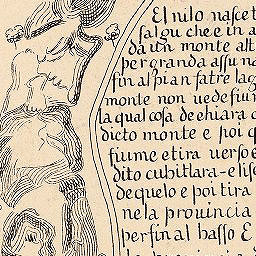 El nilo nascet
salgu che e in a
da un monte alt
per granda assu na
fin al pian fatre lag
monte non uede fiun
la qual cosa de chiara c
dicto monte e poi q
fiume e tira uerso e
dito cubitlara-elisc
de quelo e poi tira
nela prouincia
perfin al basso E